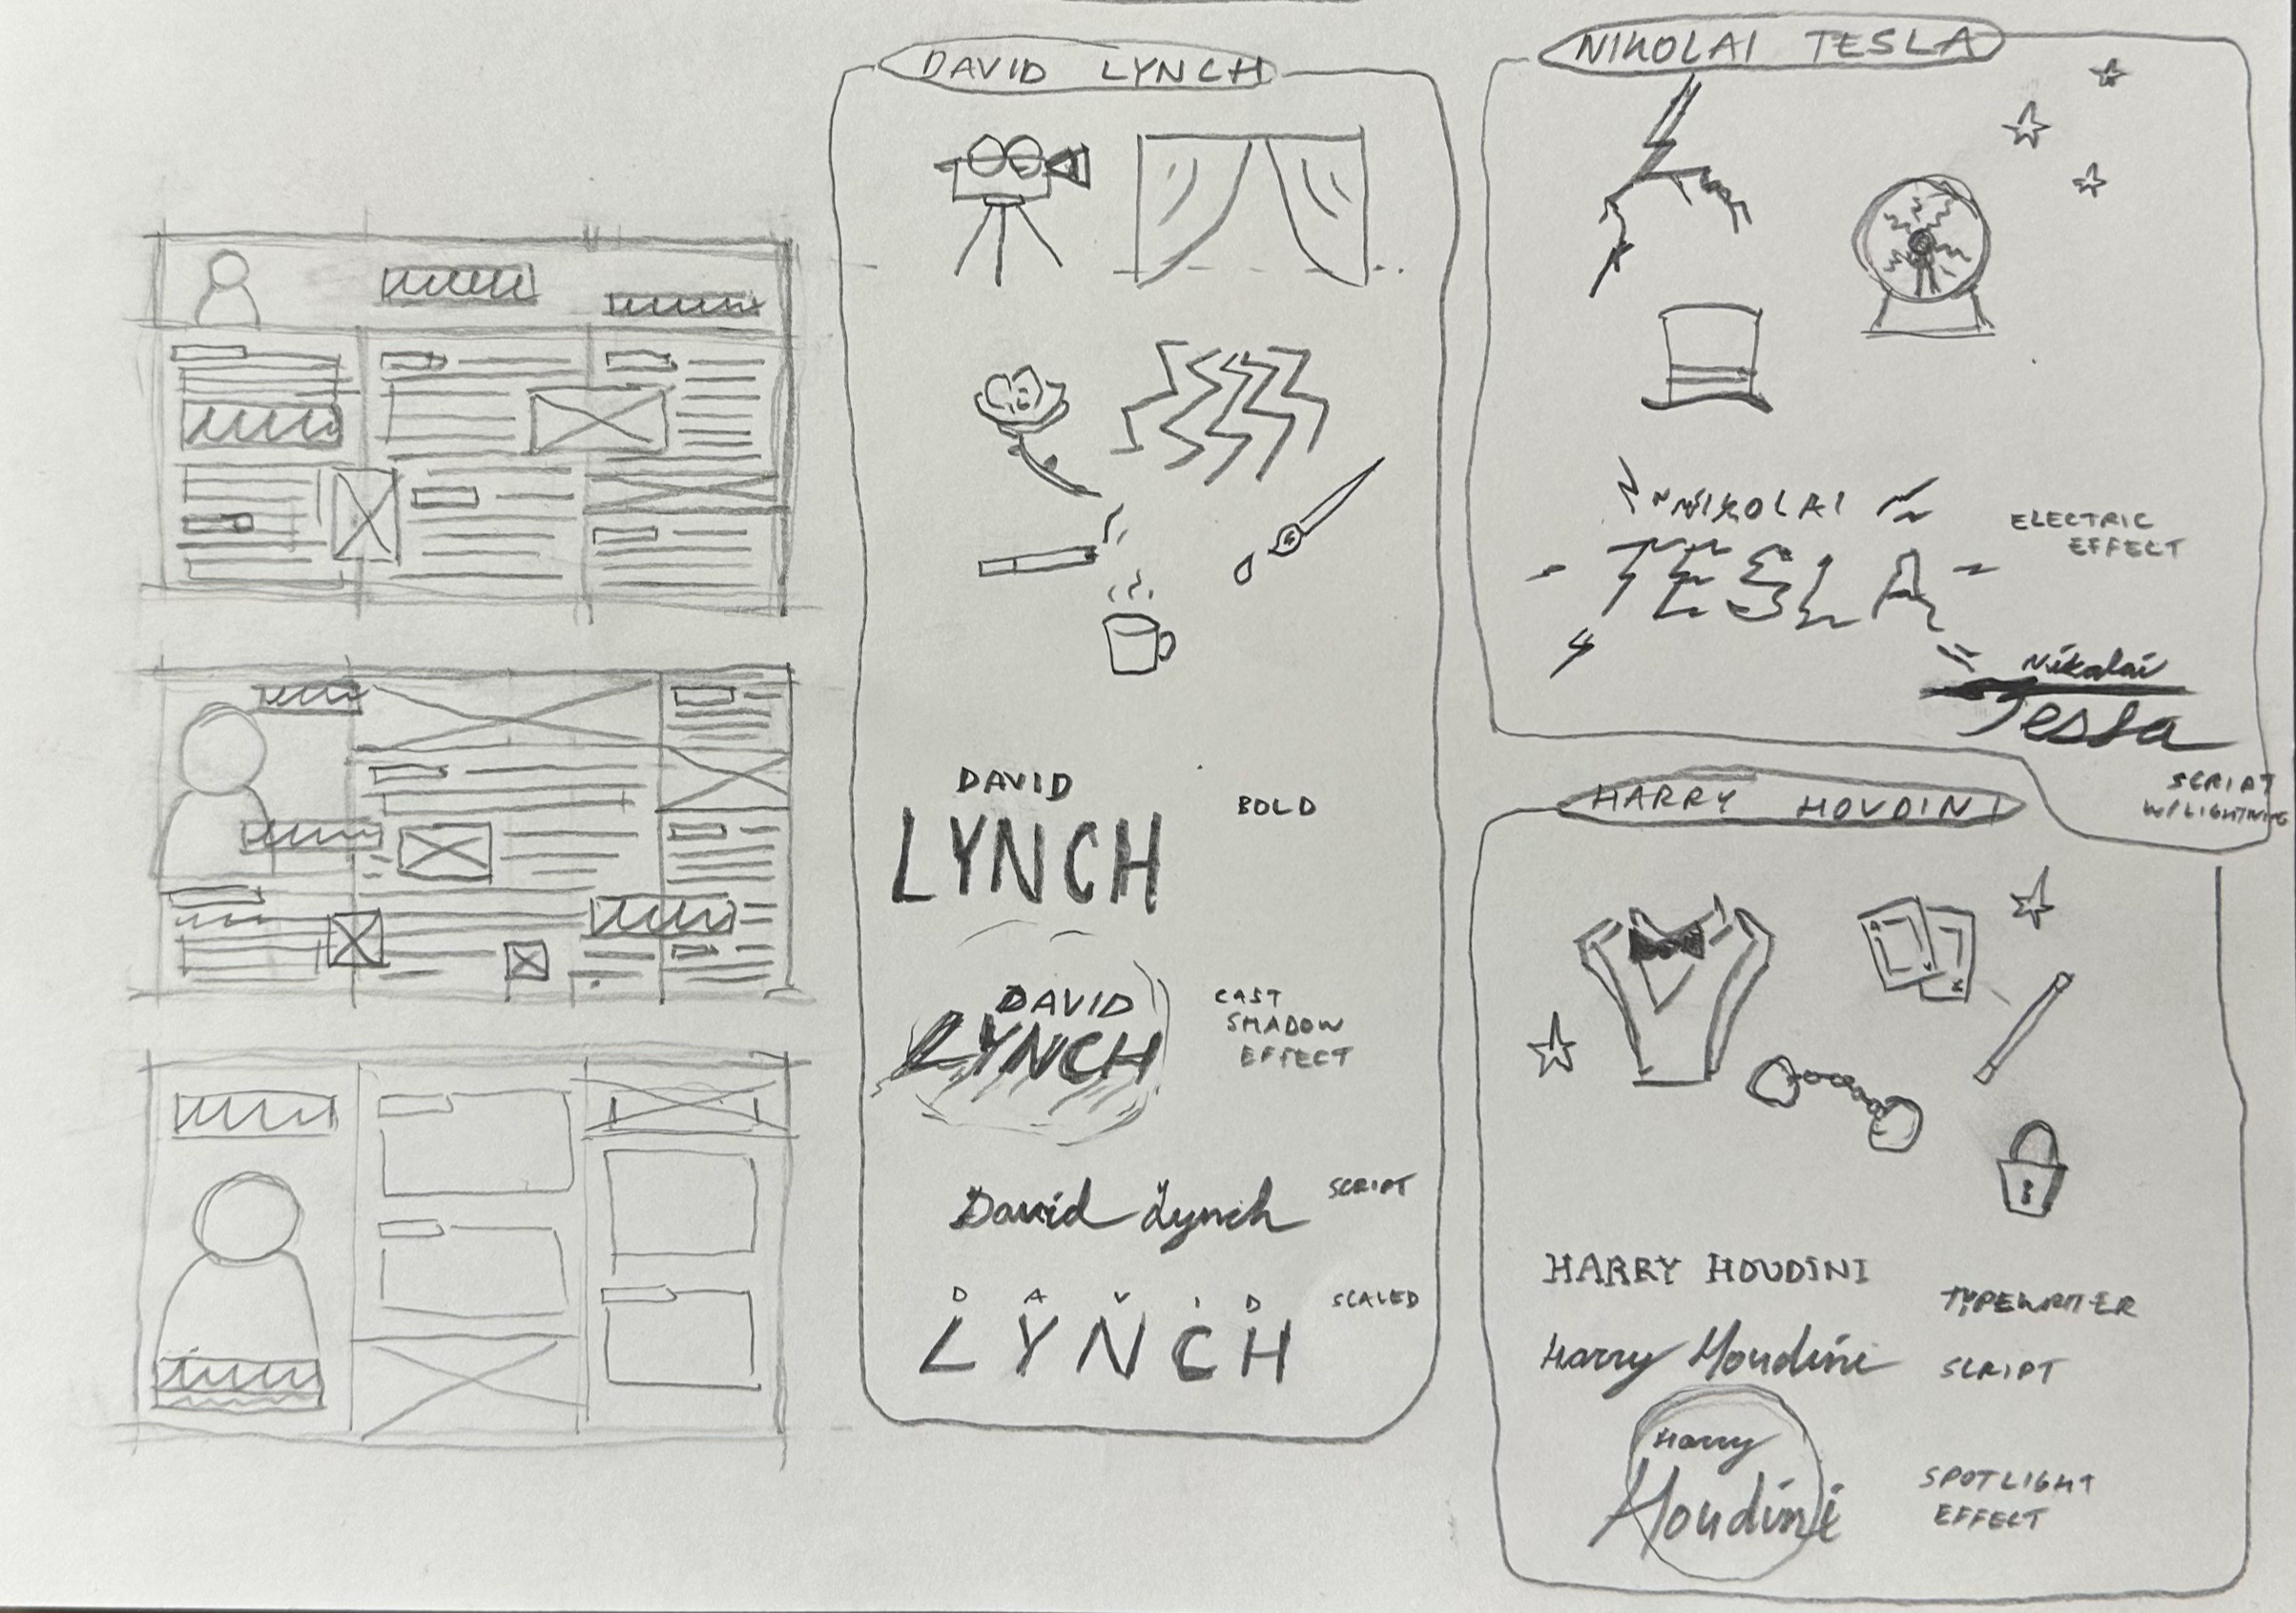 DAVID LYNCH
DAVID
LYNCH
BOLD
DAVID
LYNCH
CAST
SHADOW
EFFECT
David Lynch
SCRIPT
D A V I D
LYNCH
SCALED
NIKOLAI TESLA
NIKOLAI
TESLA
ELECTRIC
EFFECT
Nikolai
Tesla
SCRIPT
W/LIGHTNING
HARRY HOUDINI
HARRY HOUDINI
TYPEWRITER
Harry Houdini
SCRIPT
Harry
Houdini
SPOTLIGHT
EFFECT